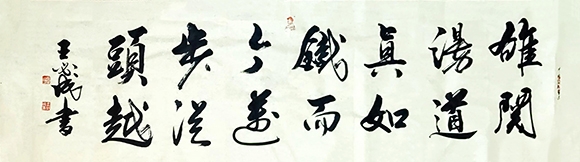 雄關
漫道
眞如
鐵而
今邁
步從
頭越
王 成書